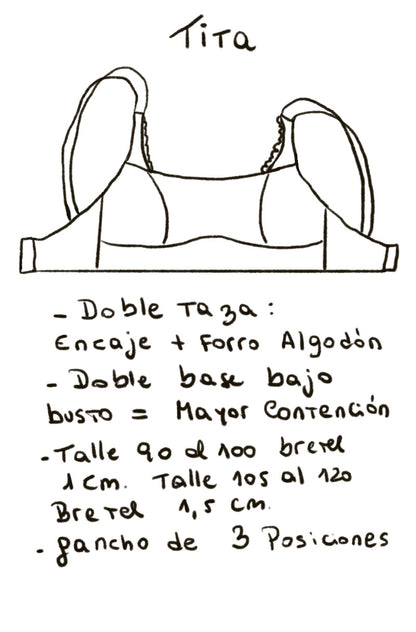 Tita
- Doble Taza:
Encaje + Forro Algodón
- Doble base bajo
busto = Mayor Contención
- Talle 90 al 100 bretel
1 cm. Talle 105 al 120
Bretel 1,5 cm.
- gancho de 3 Posiciones